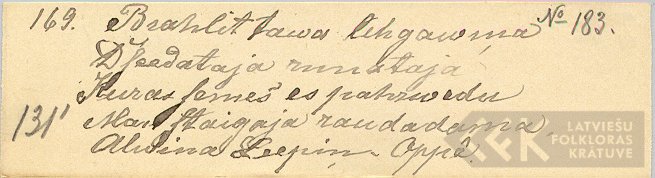 169. Brahlit tawa lihgawiņa № 183.
Dseedataja runataja
Kuras semes es pahrwedu
131 Man staigaja raudadama,
Alwina Leepiņ - Oppe.
LATVIEŠU
FOLKLORAS
KRĀTUVE